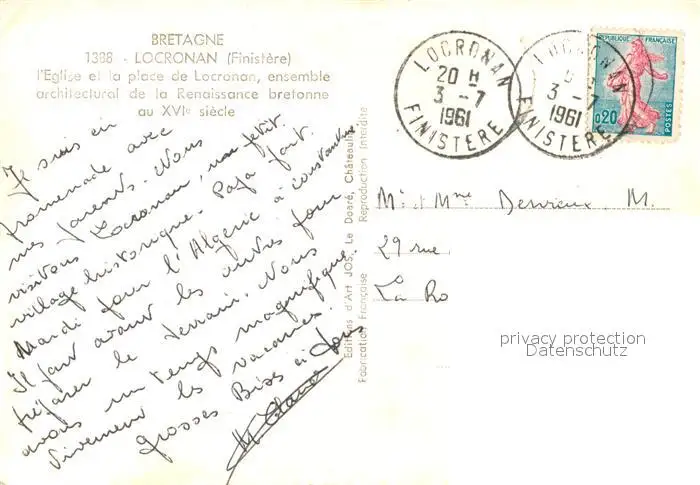 BRETAGNE
1388 - LOCRONAN (Finistère)
l'Eglise et la place de Locronan, ensemble
architectural de la Renaissance bretonne
au XVIe siècle
Je suis en
promenade avec
mes parents. Nous
visitons Locronan, un petit
village historique. Papa part
Mardi pour l'Algérie à Constantine
Il part avant les autres pour
préparer le terrain. Nous
avons un temps magnifique.
Vivement les vacances!
grosses Bises à tous
M. Claude
Editions d'Art JOS, Le Doaré, Châteaulin
Fabrication Française Reproduction Interdite
LOCRONAN
20 H
3 -7
1961
FINISTERE
LOCRONAN
3 -7
1961
FINISTERE
REPUBLIQUE FRANÇAISE
0,20
POSTES
Mr et Mme M.
29 rue
La Ro
privacy protection
Datenschutz